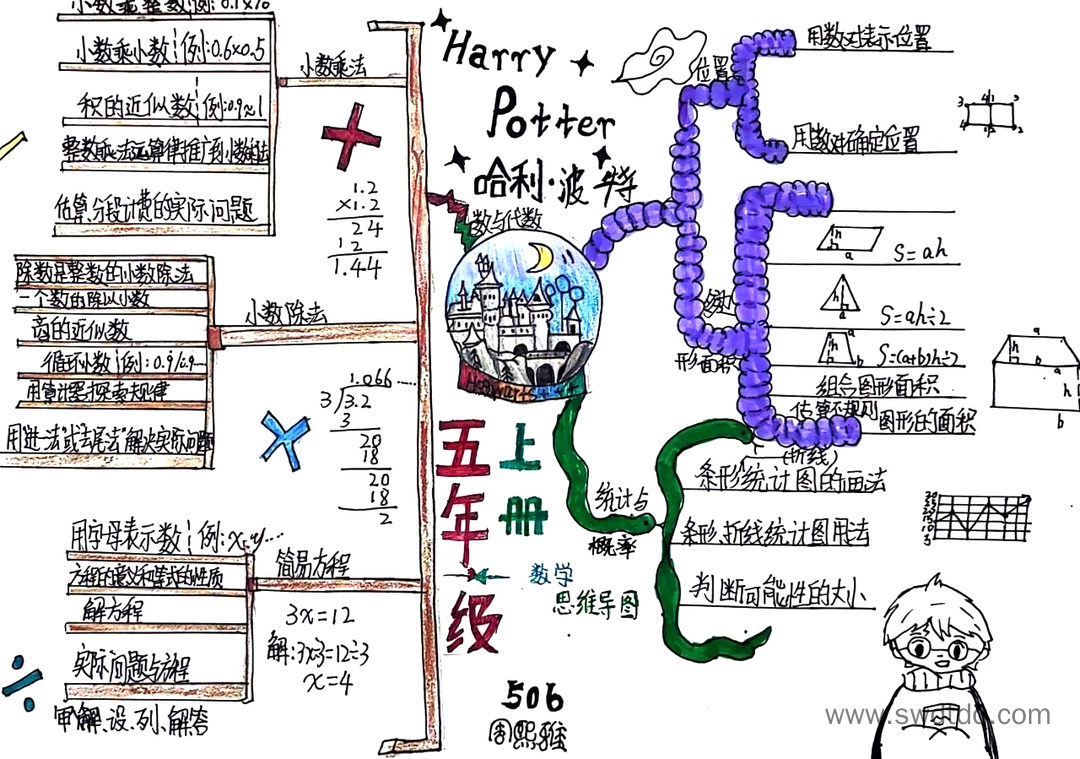 小数乘整数 例:0.1×70
小数乘小数 例:0.6×0.5
积的近似数 例:0.9≈1
整数乘法运算律推广到小数乘法
估算,分段计费的实际问题
小数乘法
1.2
×1.2
24
12
1.44
除数是整数的小数除法
一个数的除以小数
商的近似数
循环小数 例:0.9/0.9…
用计算器探索规律
用"进一法"或"去尾法"解决实际问题
小数除去
1.066……
3 3.2
3
20
18
20
18
2
用字母表示数 例:x、y…
方程的意义和等式的性质
解方程
实际问题与方程
审、解、设、列、解答
简易方程
3x=12
解:3x÷3=12÷3
x=4
Harry
Potter
哈利·波特
数与代数
Hogwarts
五年级
上册
数学
思维导图
506
周熙雅
位置
用数对表示位置
用数对确定位置
多边
形面积
h
a
S=ah
h
a
S=ah÷2
a
h
b
S=(a+b)h÷2
组合图形面积
估算不规则
图形的面积
a
h
a
a
h
b
统计与
概率
(折线)
条形统计图的画法
条形,折线统计图用法
判断可能性的大小